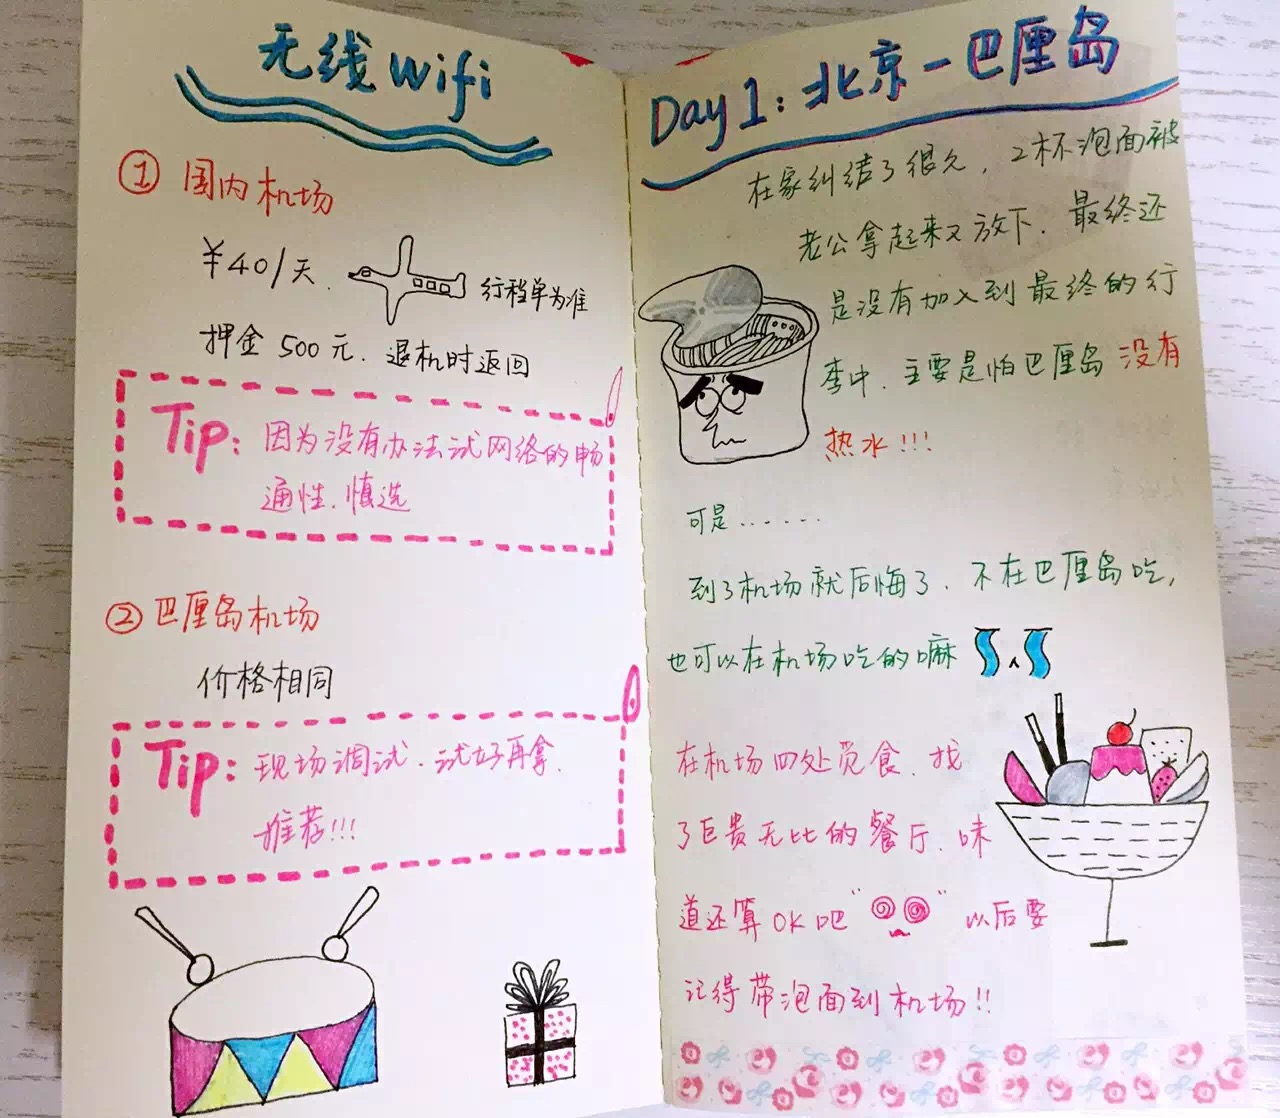 无线Wifi
① 国内机场
￥40/天. 行程单为准
押金500元. 退机时返回
Tip: 因为没有办法试网络的畅
通性. 慎选
② 巴厘岛机场
价格相同
Tip: 现场调试. 试好再拿.
推荐!!!
Day 1: 北京-巴厘岛
在家纠结了很久, 2杯泡面被
老公拿起来又放下. 最终还
是没有加入到最终的行
李中. 主要是怕巴厘岛没有
热水!!!
可是......
到了机场就后悔了. 不在巴厘岛吃,
也可以在机场吃的嘛
在机场四处觅食. 找
了巨贵无比的餐厅. 味
道还算OK吧“ ” 以后要
记得带泡面到机场!!